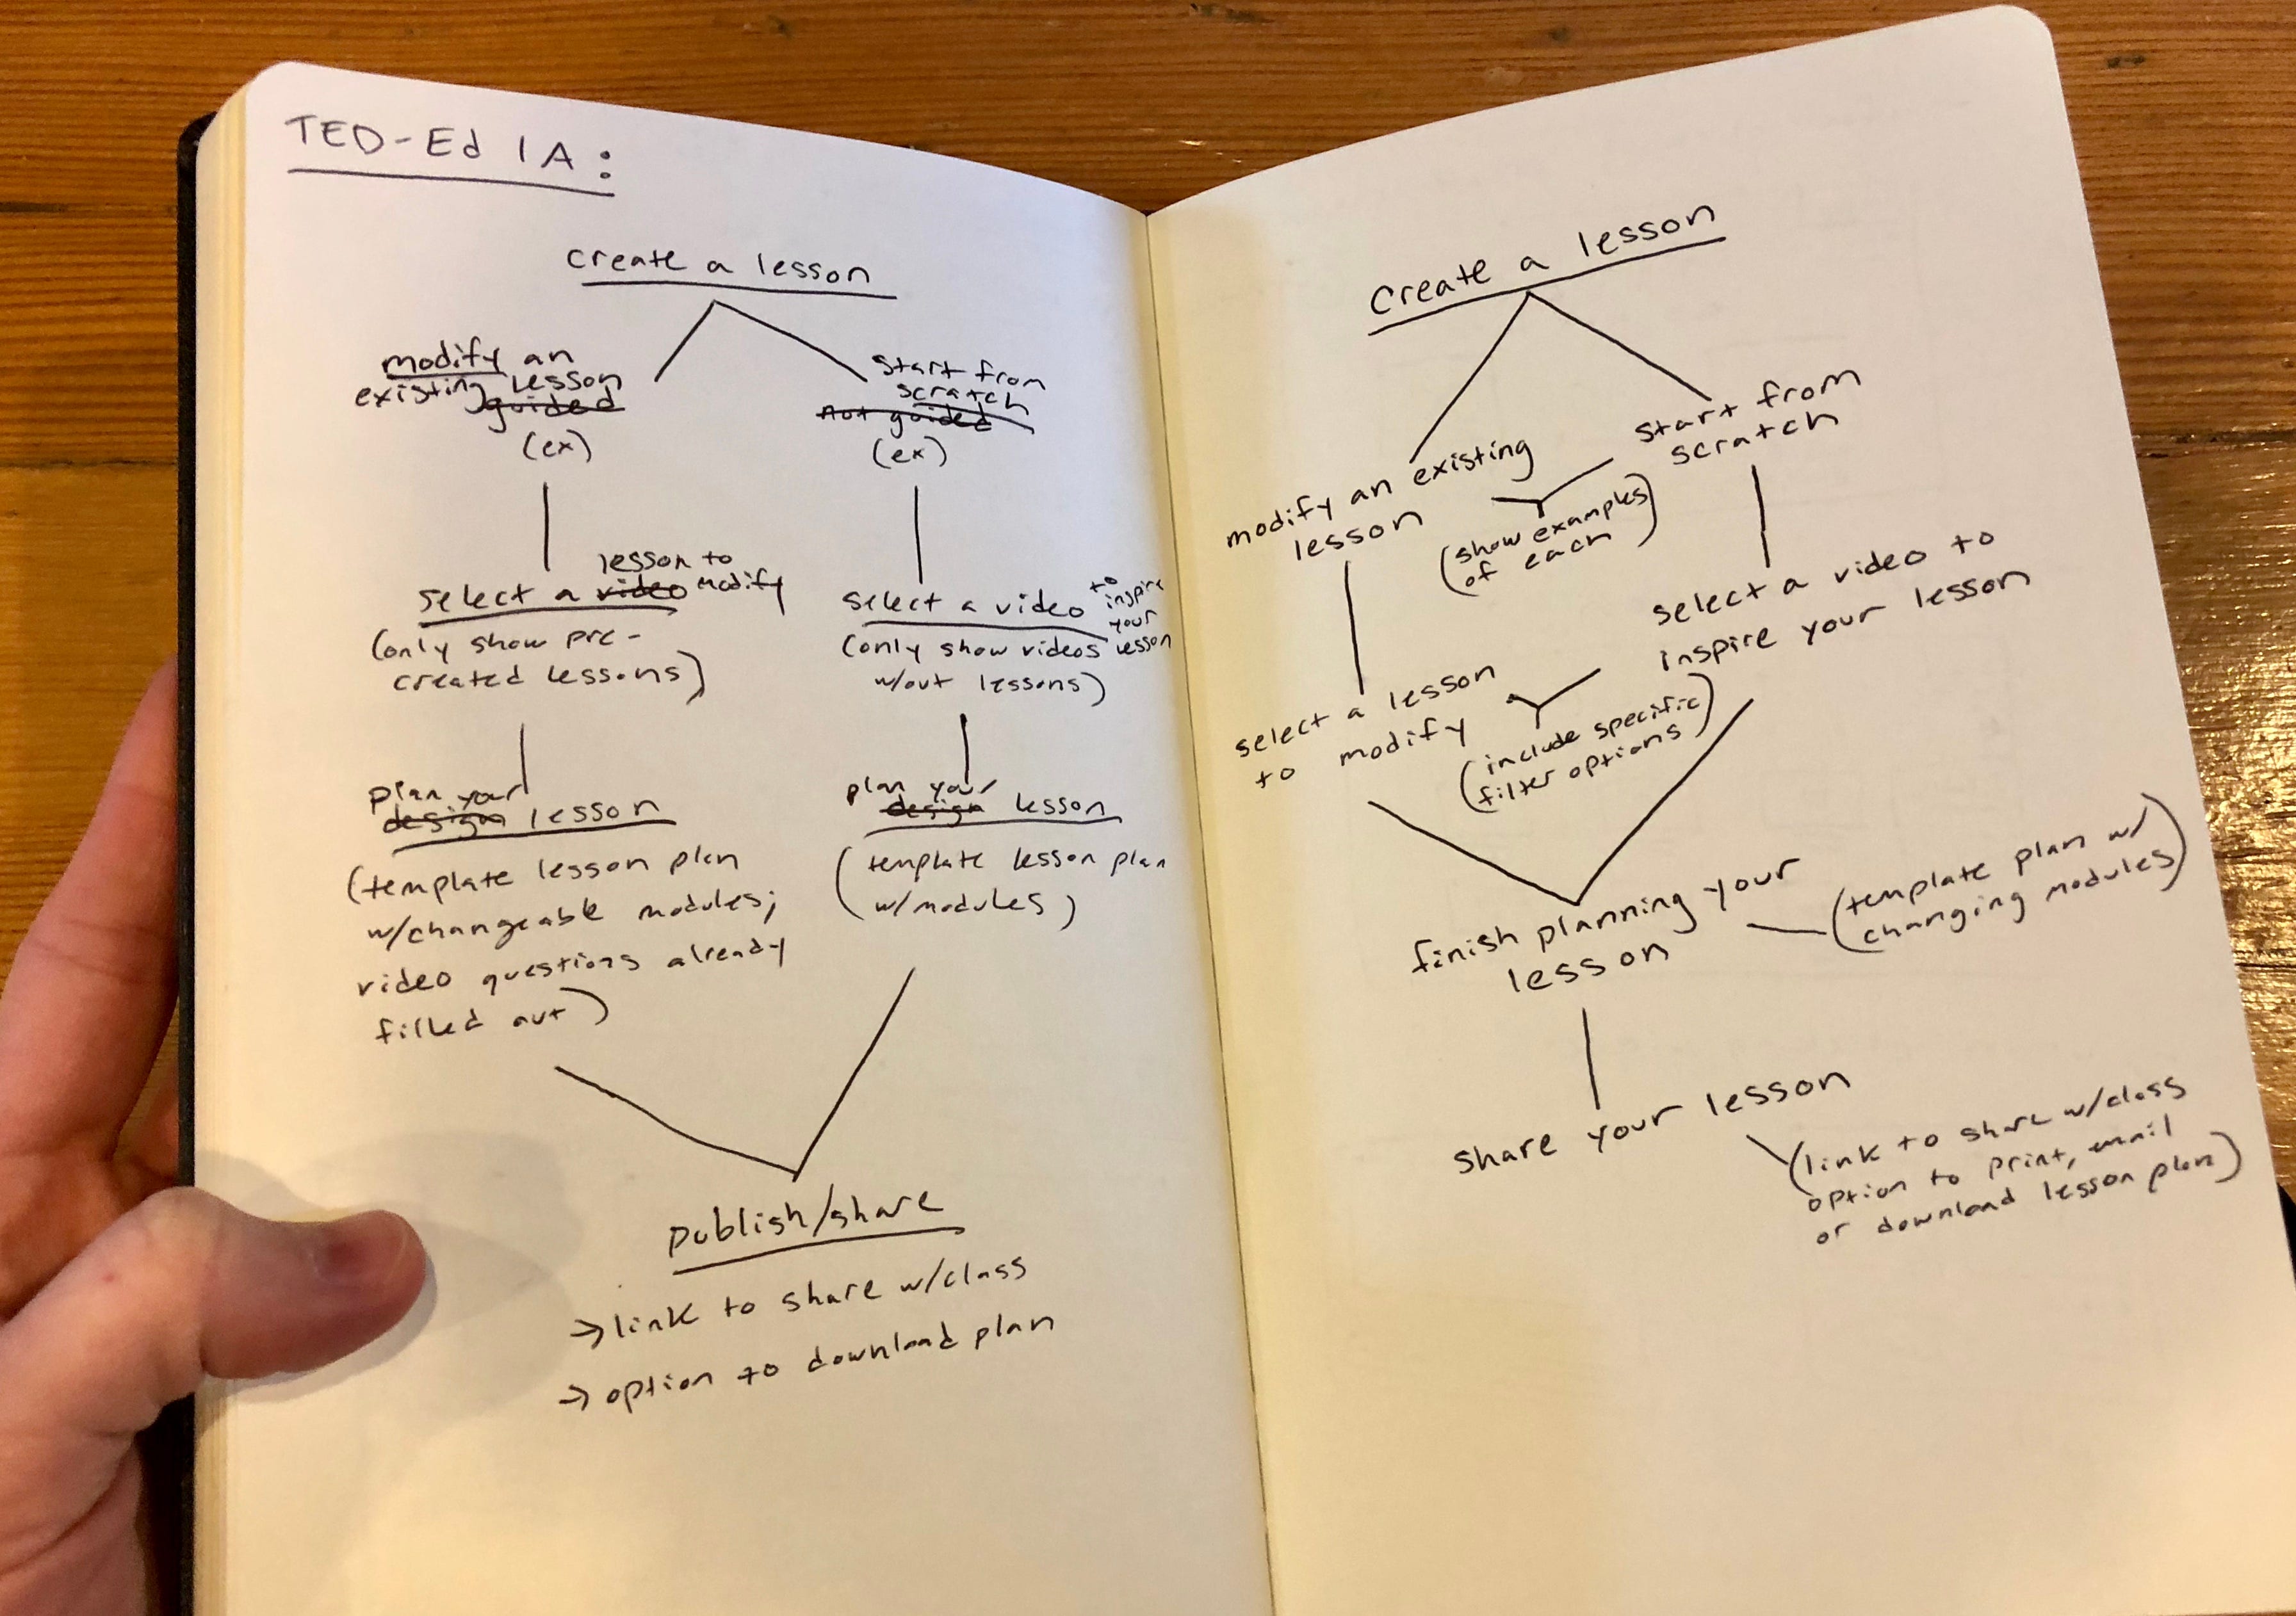 TED-Ed IA:
create a lesson
modify an
existing lesson
guided
(ex)
start from
scratch
not guided
(ex)
lesson to
select a video modify
(only show pre-
created lessons)
select a video to
inspire
your
lesson
(only show videos
w/out lessons)
plan your
design lesson
(template lesson plan
w/changeable modules;
video questions already
filled out)
plan your
design lesson
(template lesson plan
w/modules)
publish/share
→ link to share w/class
→ option to download plan
create a lesson
modify an existing
lesson
start from
scratch
(show examples
of each)
select a lesson
to modify
select a video to
inspire your lesson
(include specific
filter options)
finish planning your
lesson
(template plan w/
changing modules)
share your lesson
(link to share w/class
option to print, email
or download lesson plan)